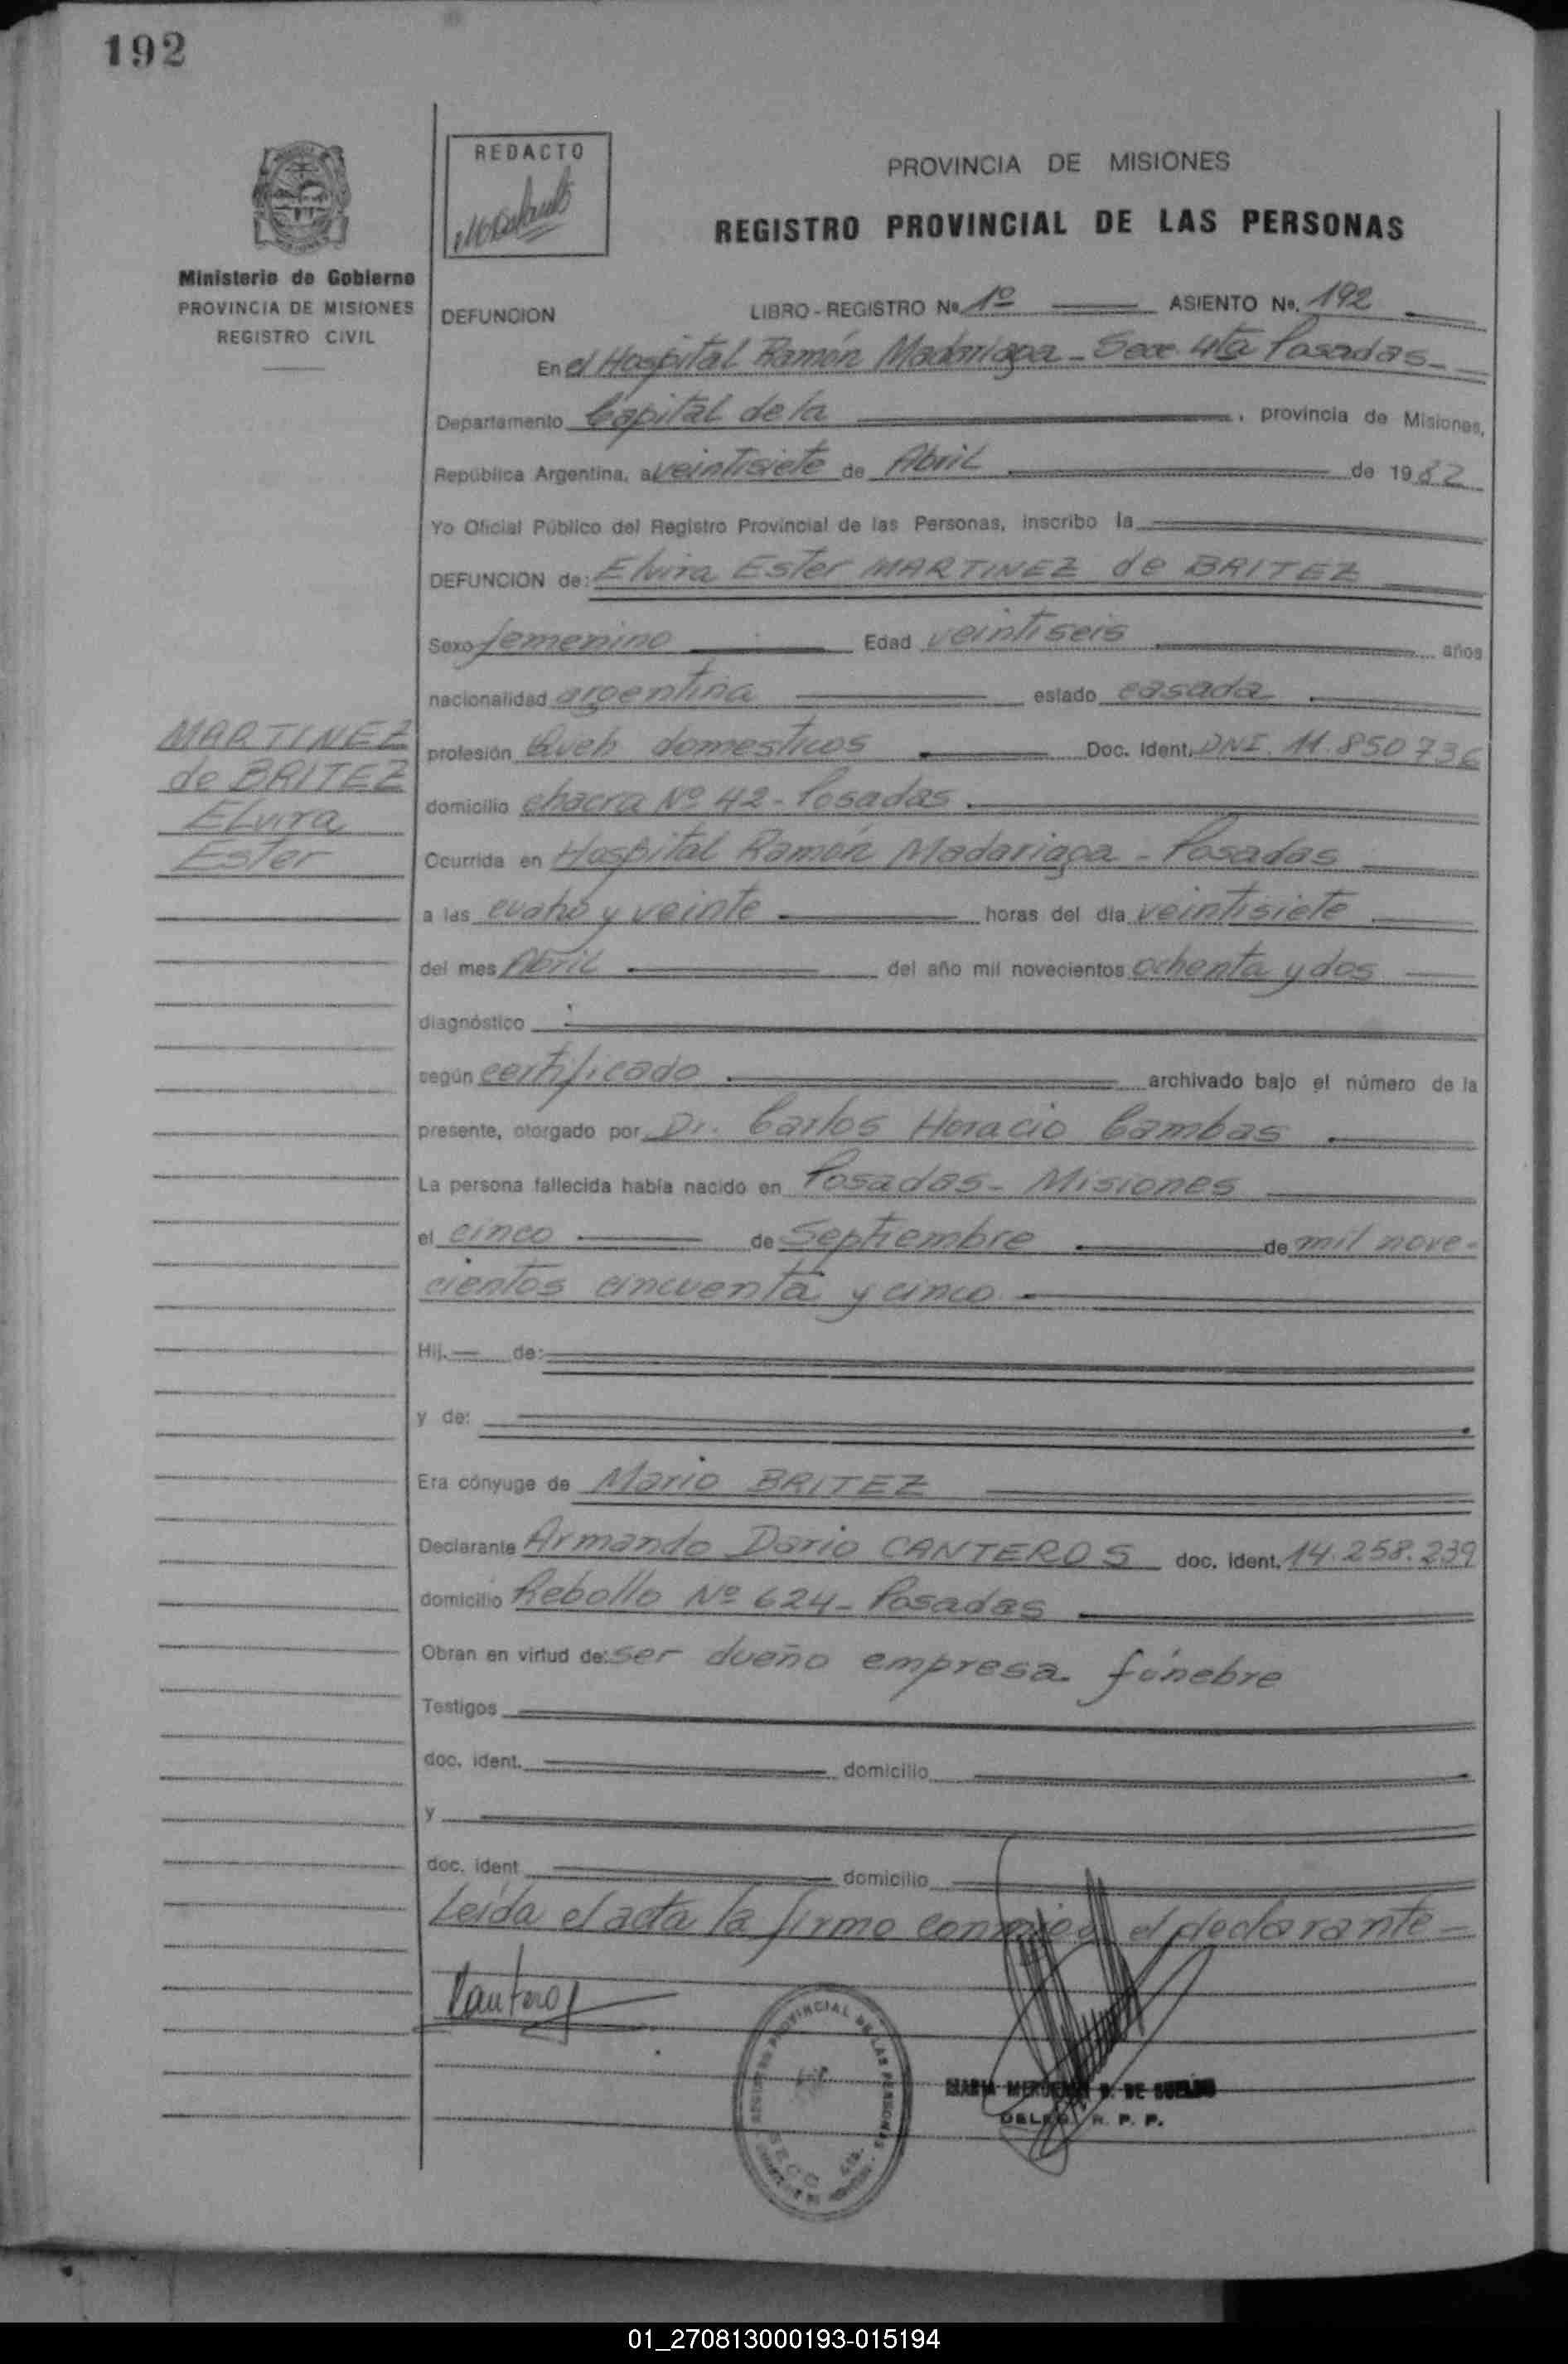 192
REDACTO
PROVINCIA DE MISIONES
REGISTRO PROVINCIAL DE LAS PERSONAS
Ministerio de Gobierno
PROVINCIA DE MISIONES
REGISTRO CIVIL
DEFUNCION LIBRO-REGISTRO Nº 1º ASIENTO Nº. 192
En el Hospital Ramón Madariaga - Secc. 4ta Posadas -
Departamento Capital de la, provincia de Misiones,
República Argentina, a veintisiete de Abril de 1982
Yo Oficial Público del Registro Provincial de las Personas, inscribo la
DEFUNCION de: Elvira Ester MARTINEZ de BRITEZ
Sexo femenino Edad veintiseis años
nacionalidad argentina estado casada
MARTINEZ
de BRITEZ
Elvira
Ester
profesión Queh domesticos Doc. Ident. DNI. 11.850736
domicilio chacra Nº 42 - Posadas
Ocurrida en Hospital Ramón Madariaga - Posadas
a las cuatro y veinte horas del día veintisiete
del mes Abril del año mil novecientos ochenta y dos
diagnóstico
según certificado archivado bajo el número de la
presente, otorgado por Dr. Carlos Horacio Cambas
La persona fallecida había nacido en Posadas - Misiones
el cinco de Septiembre de mil nove-
cientos cincuenta y cinco
Hij. de:
y de:
Era cónyuge de Mario BRITEZ
Declarante Armando Dario CANTEROS doc. ident. 14.258.239
domicilio Rebollo Nº 624 - Posadas
Obran en virtud de: ser dueño empresa fúnebre
Testigos
doc. ident. domicilio
y
doc. ident domicilio
Leída el acta la firmo conmigo el declarante -
Canteros
REGISTRO PROVINCIAL DE LAS PERSONAS
SECC. 4ta.
MARIA DE
DELEG. R. P. P.
01_270813000193-015194